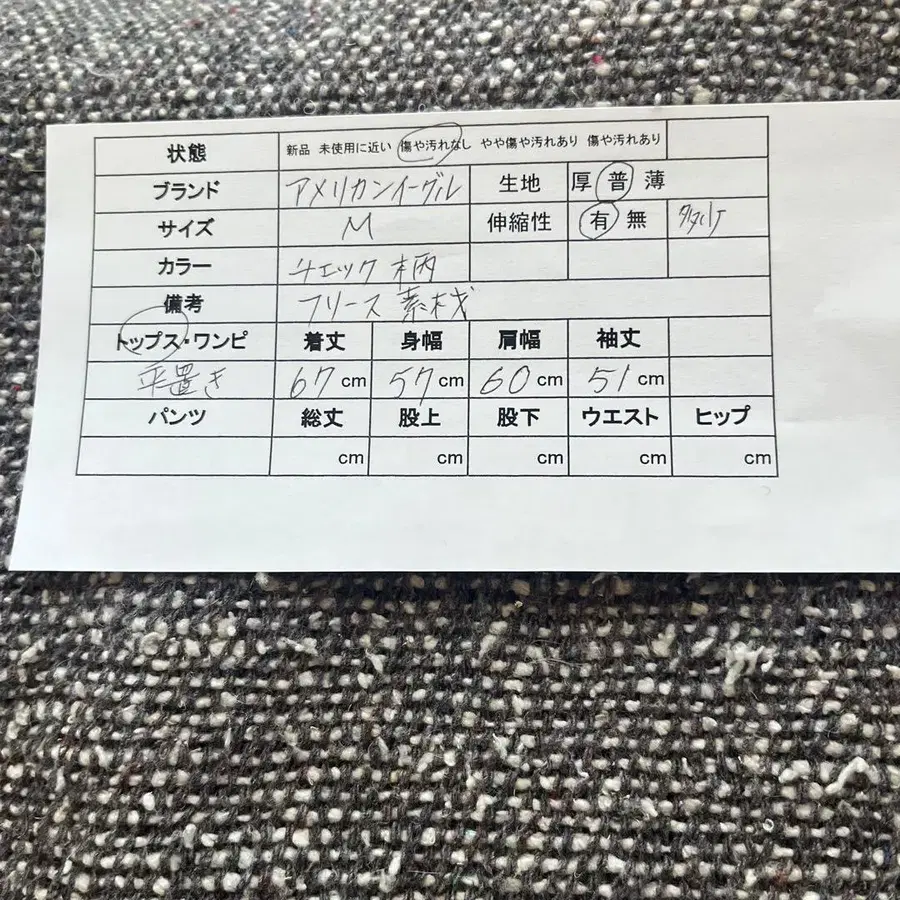 状態 新品 未使用に近い 傷や汚れなし やや傷や汚れあり 傷や汚れあり
ブランド アメリカンイーグル 生地 厚 普 薄
サイズ M 伸縮性 有 無
カラー チェック柄
備考 フリース素材
トップス・ワンピ 着丈 身幅 肩幅 袖丈
平置き 67cm 57cm 60cm 51cm
パンツ 総丈 股上 股下 ウエスト ヒップ
cm cm cm cm cm